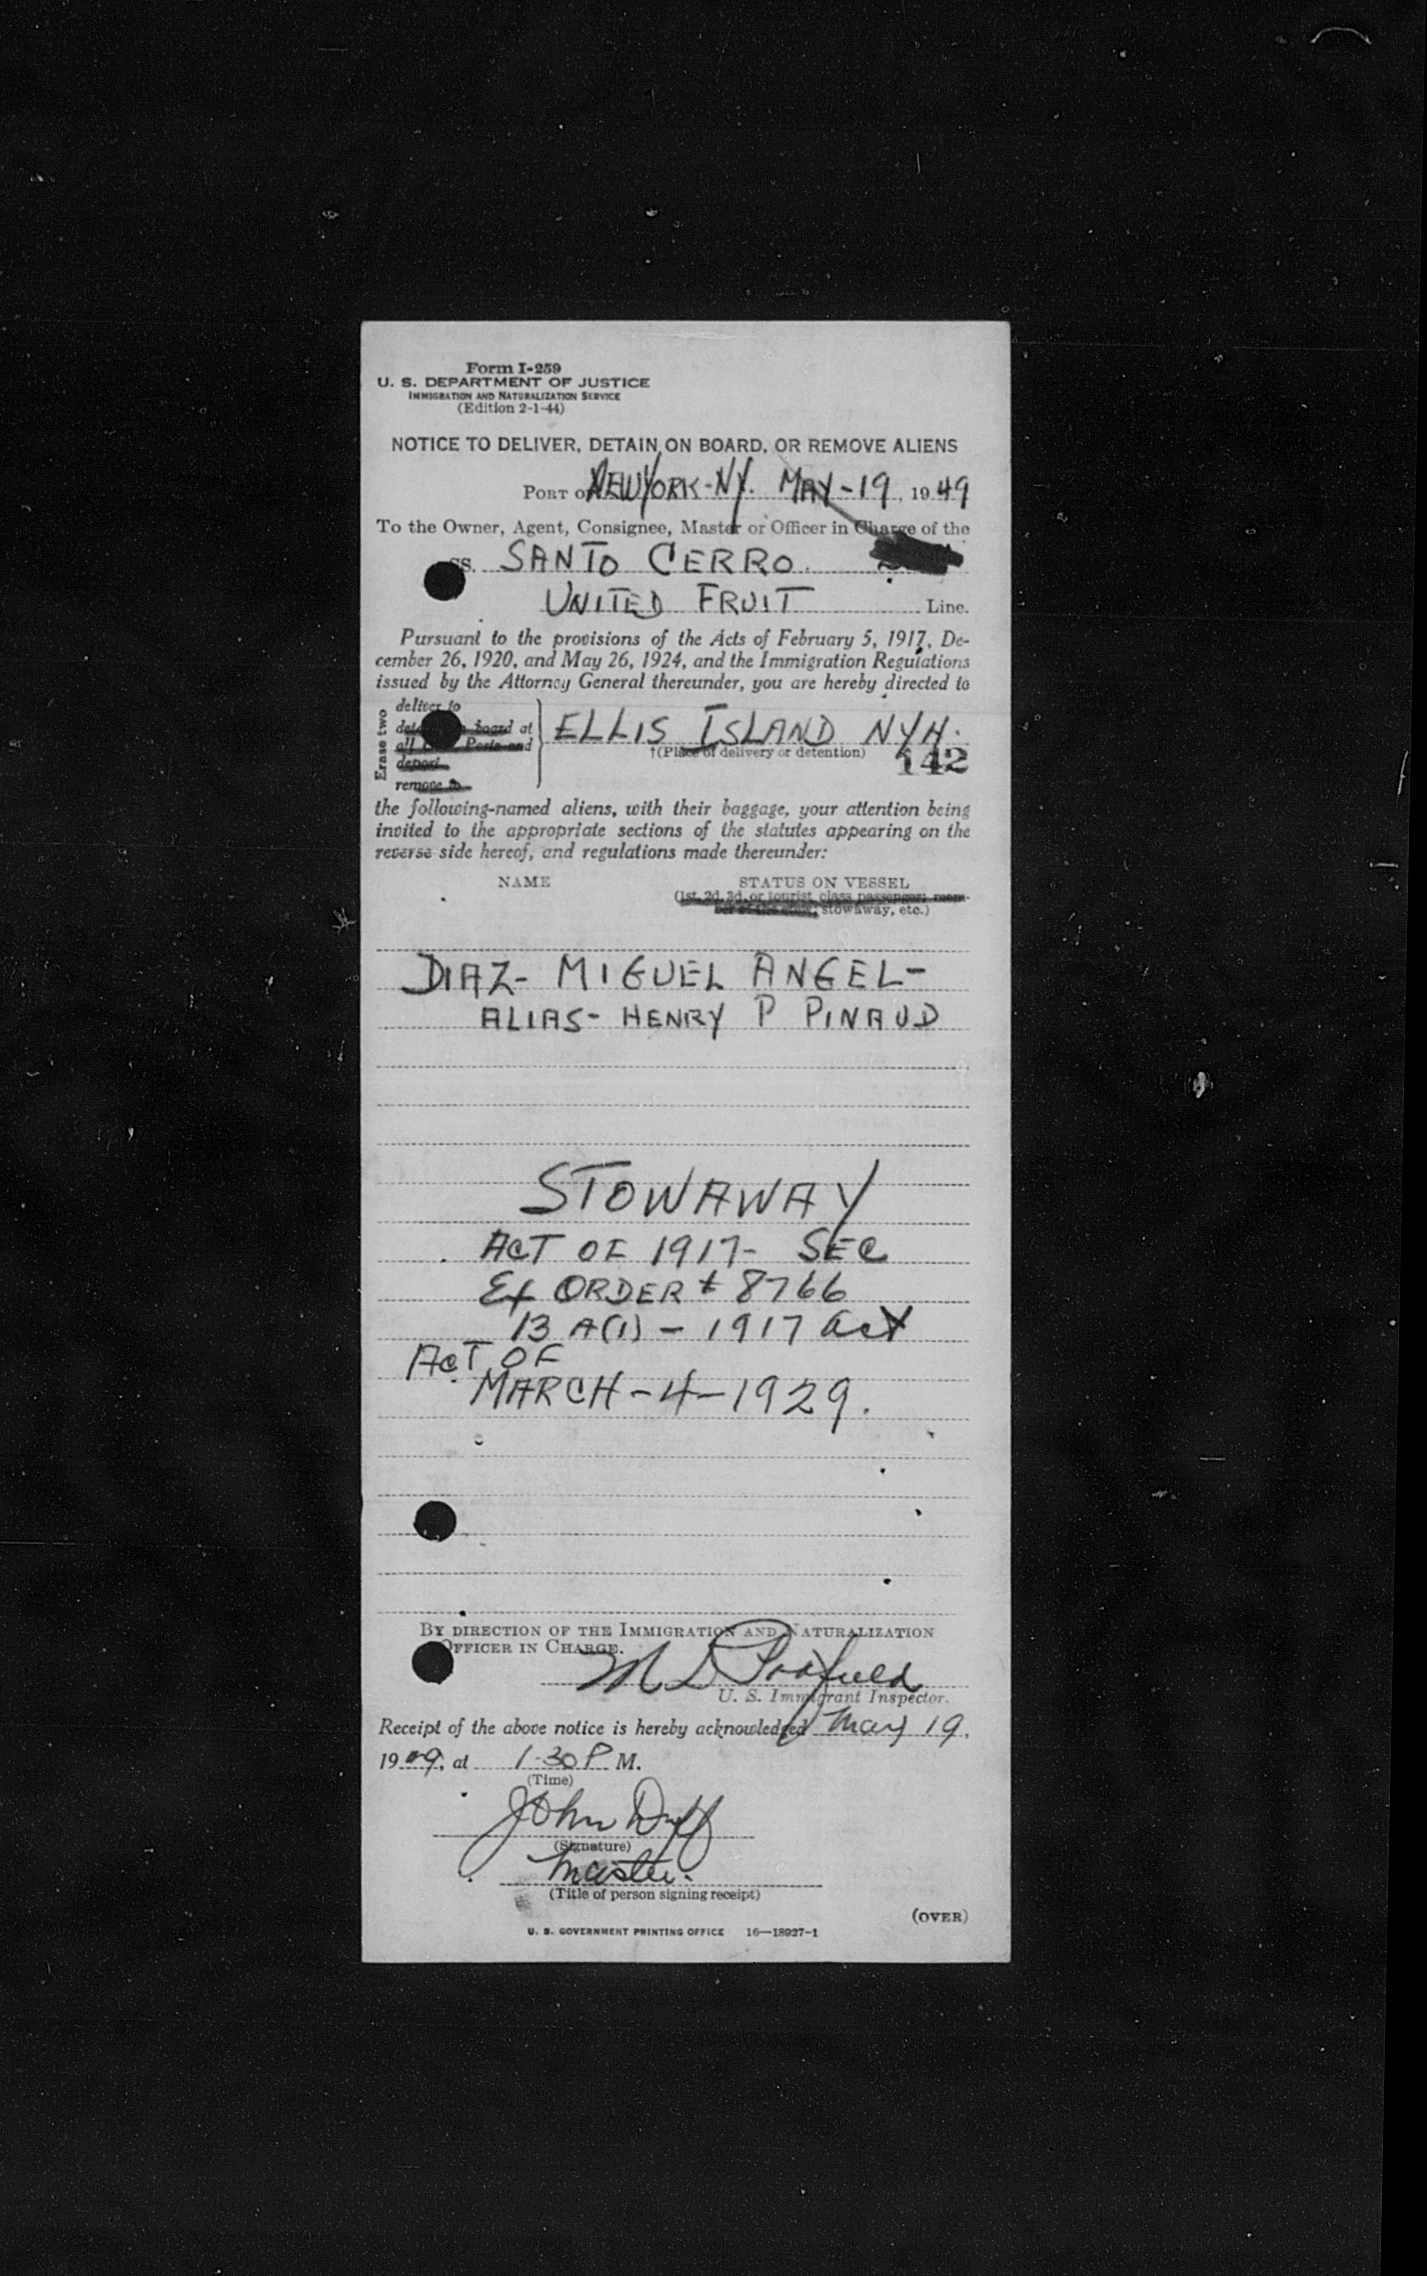 Form I-259
U. S. DEPARTMENT OF JUSTICE
IMMIGRATION AND NATURALIZATION SERVICE
(Edition 2-1-44)
NOTICE TO DELIVER, DETAIN ON BOARD, OR REMOVE ALIENS
PORT OF NEW YORK-NY. MAY-19, 1949
To the Owner, Agent, Consignee, Master or Officer in Charge of the
SS. SANTO CERRO.
UNITED FRUIT Line.
Pursuant to the provisions of the Acts of February 5, 1917, De-
cember 26, 1920, and May 26, 1924, and the Immigration Regulations
issued by the Attorney General thereunder, you are hereby directed to
Erase two
deliver to
board at
all Ports and
deport
remove to
ELLIS ISLAND NYH.
†(Place of delivery or detention)
142
the following-named aliens, with their baggage, your attention being
invited to the appropriate sections of the statutes appearing on the
reverse side hereof, and regulations made thereunder:
NAME STATUS ON VESSEL
(1st, 2d, 3d, or tourist class passenger; mem-
ber of the crew, stowaway, etc.)
DIAZ- MIGUEL ANGEL-
ALIAS- HENRY P PINAUD
STOWAWAY
ACT OF 1917- SEC
Ex ORDER # 8766
13 A(1) - 1917 act
ACT OF
MARCH-4-1929.
BY DIRECTION OF THE IMMIGRATION AND NATURALIZATION
OFFICER IN CHARGE.
M
U. S. Immigrant Inspector.
Receipt of the above notice is hereby acknowledged May 19,
1949, at 1-30 P M.
(Time)
John Duff
(Signature)
Master.
(Title of person signing receipt)
(OVER)
U. S. GOVERNMENT PRINTING OFFICE 16—18927-1